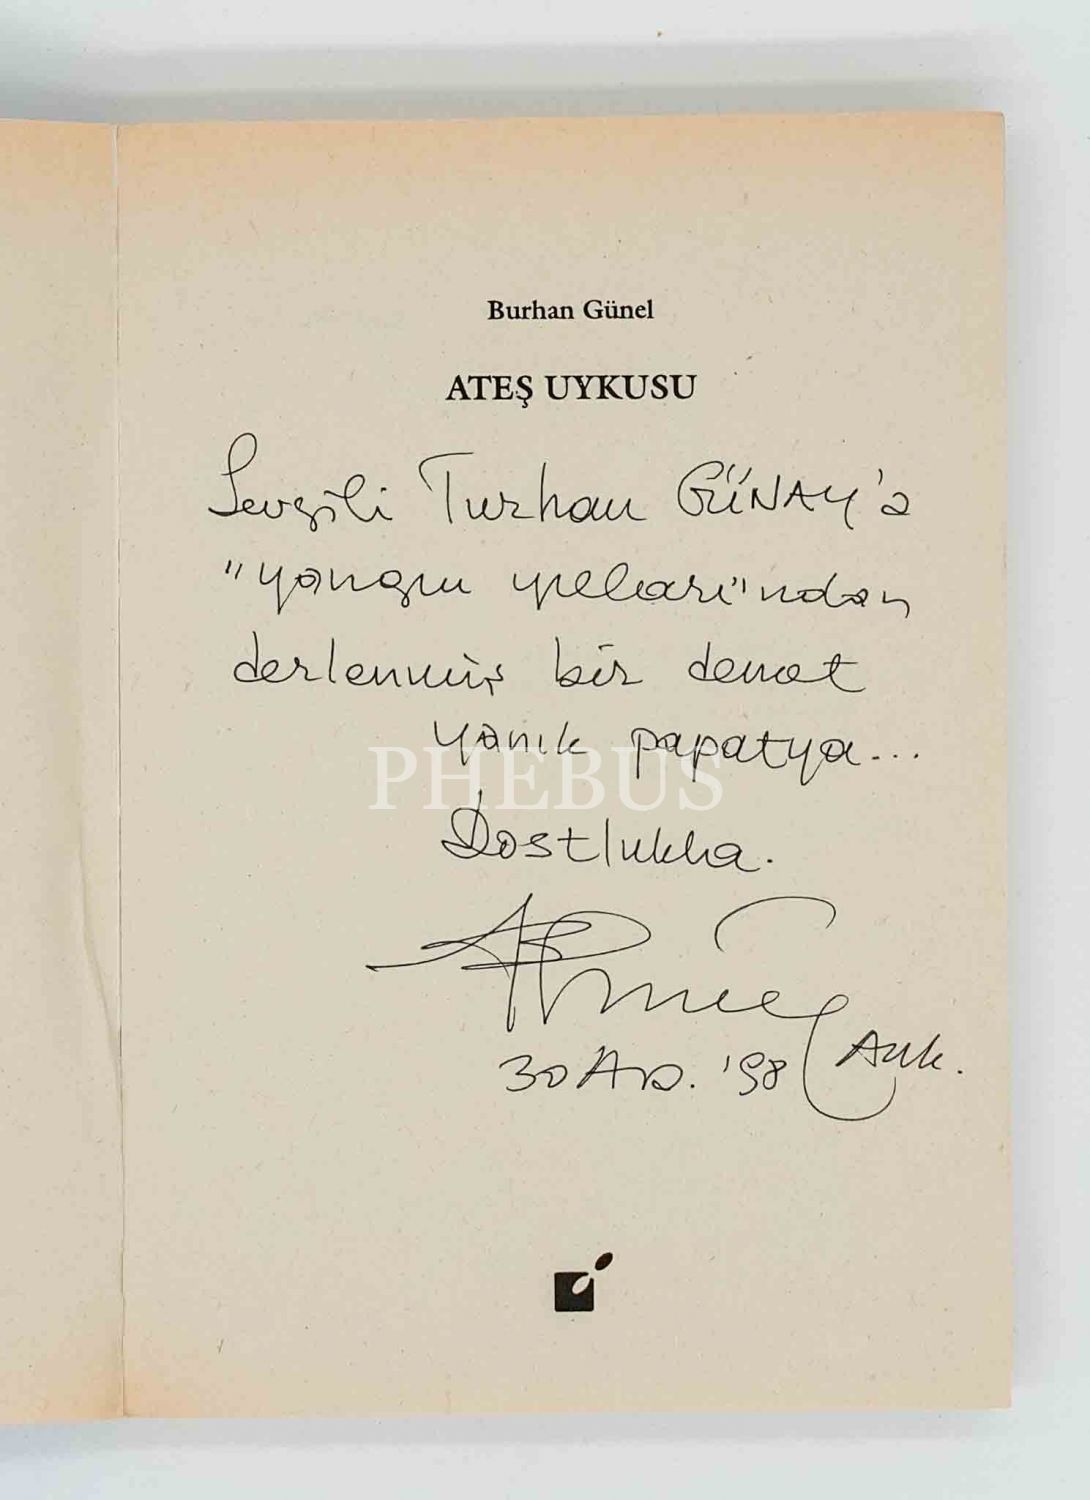 Burhan Günel
ATEŞ UYKUSU
Sevgili Turhan GÜNAY'a
"yangın yılları"ndan
derlenmiş bir demet
yanık papatya...
PHEBUS
Dostlukla.
30 Ara. '98 Ank.